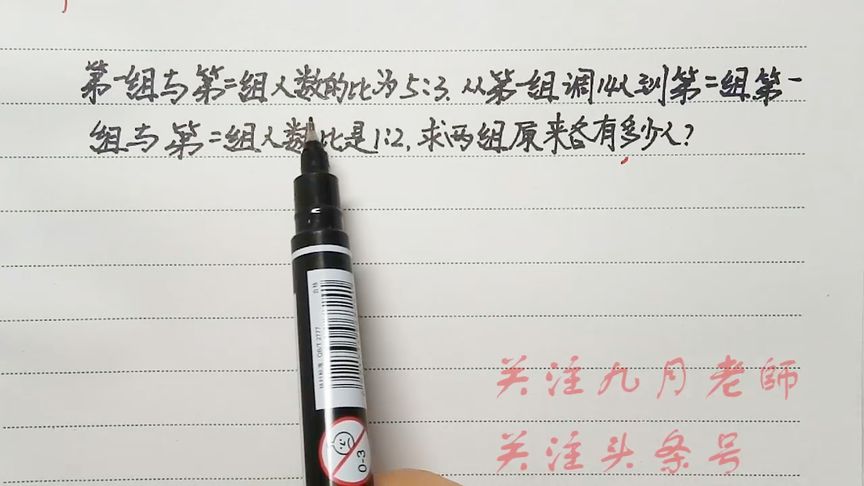 第一组与第二组人数的比为5:3.从第一组调14人到第二组第一
组与第二组人数比是1:2,求两组原来各有多少人?
合格
QB/T 2777
0-3
关注九月老師
关注头条号